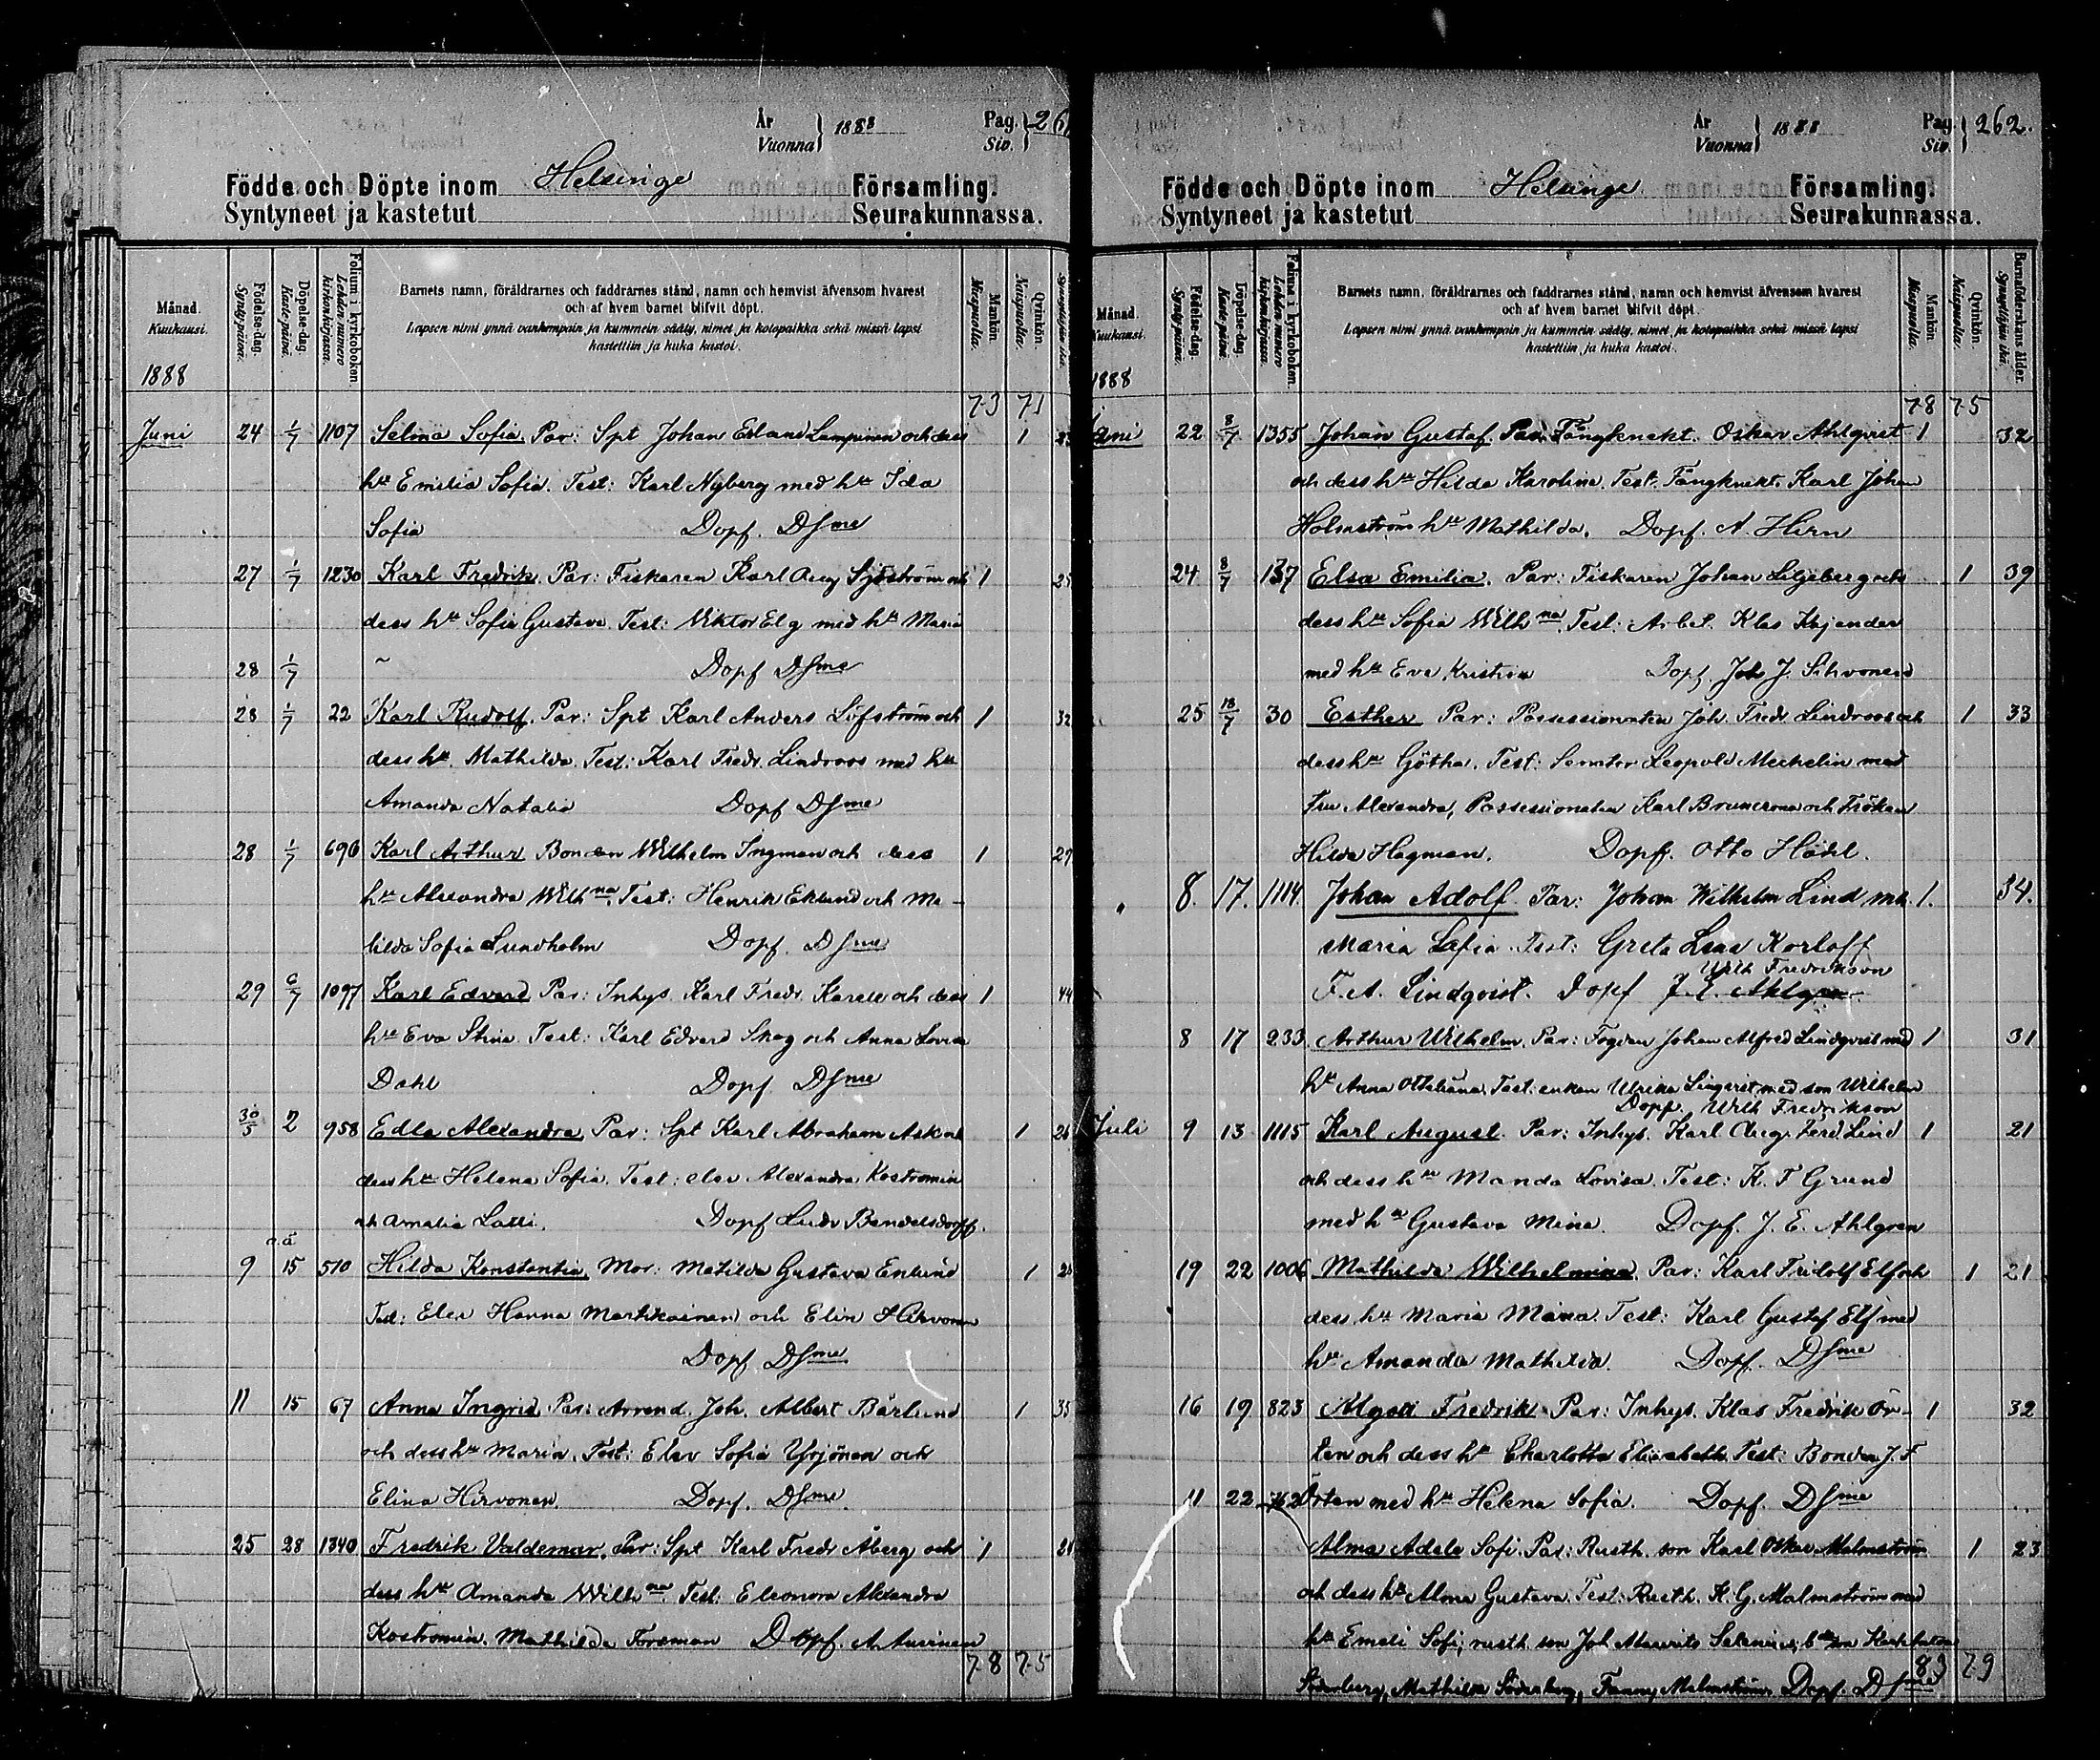 År 1888 Pag. 261
Vuonna Siv.
Födde och Döpte inom Helsinge Församling.
Syntyneet ja kastetut Seurakunnassa.
Månad. Kuukausi. 1888
Födelse-dag. Syntypäivä.
Döpelse-dag. Kaste-päivä.
Folium i kyrkoboken. Lehden numero kirkonkirjassa.
Barnets namn, föräldrarnes och faddrarnes stånd, namn och hemvist äfvensom hvarest
och af hvem barnet blifvit döpt.
Lapsen nimi ynnä vanhempain ja kummein sääty, nimet ja kotopaikka sekä missä lapsi
kastettiin ja kuka kastoi.
Mankön. Miespuolia.
Qvinkön. Naispuolia.
73 71
Juni 24 1/7 1107 Selma Sofia. Par: Spt Johan Erland Lampinen och dess 1
hu Emilia Sofia. Test: Karl Nyberg med hu Ida
Sofia Dopf. DSme
27 1/7 1230 Karl Fredrik. Par: Fiskaren Karl Aug Sjöström och 1 25
dess hu Sofia Gustava. Test: Viktor Elg med hu Maria
28 1/7 Dopf DSme
28 1/7 22 Karl Rudolf. Par: Spt Karl Anders Löfström och 1 32
dess hu Mathilda. Test: Karl Fredr. Lindroos med hu
Amanda Natalia Dopf DSme
28 1/7 696 Karl Arthur Bonden Wilhelm Ingman och dess 1 27
hu Alexandra Wilhna. Test: Henrik Eklund och Ma-
tilda Sofia Lundholm Dopf. DSme
29 6/7 1097 Karl Edvard Par: Inhys. Karl Fredr. Karell och dess 1 44
hu Eva Stina. Test: Karl Edvard Skog och Anna Lovisa
Dahl Dopf DSme
30/5 2 958 Edla Alexandra. Par: Spt Karl Abraham Ask och 1 26
dess hu Helena Sofia. Test: elev Alexandra Kostromin
och Amalia Latti. Dopf Ludv Bendelsdorff.
9 15 510 Hilda Konstantia. Mor: Matilda Gustava Enlund 1
Test: Elev Hanna Martikainen och Elin Hirvonen
Dopf DSme
11 15 67 Anna Ingrid. Par: Arrend. Joh. Albert Bärlund 1 35
och dess hu Maria. Test: Elev Sofia Yrjönen och
Elina Hirvonen. Dopf. DSme.
25 28 1340 Fredrik Valdemar. Par: Spt Karl Fredr Åberg och 1
dess hu Amanda Willhna. Test: Eleonora Alexandra
Kostromin. Mathilda Forsman Dopf. A. Auvinen
78 75
År 1888 Pag. 262.
Vuonna Siv.
Födde och Döpte inom Helsinge Församling.
Syntyneet ja kastetut Seurakunnassa.
Månad. Kuukausi. 1888
Födelse-dag. Syntypäivä.
Döpelse-dag. Kaste-päivä.
Folium i kyrkoboken. Lehden numero kirkonkirjassa.
Barnets namn, föräldrarnes och faddrarnes stånd, namn och hemvist äfvensom hvarest
och af hvem barnet blifvit döpt.
Lapsen nimi ynnä vanhempain ja kummein sääty, nimet ja kotopaikka sekä missä lapsi
kastettiin ja kuka kastoi.
Mankön. Miespuolia.
Qvinkön. Naispuolia.
Barnaföderskans ålder. Synnyttäjän ikä.
78 75
Juni 22 8/7 1355 Johan Gustaf. Par: Fångknekt. Oskar Ahlqvist 1 32
och dess hu Hilda Karolina. Test. Fångknekt. Karl Johan
Holmström hu Mathilda. Dopf. A. Hirn
24 8/7 137 Elsa Emilia. Par: Fiskaren Johan Liljeberg och 1 39
dess hu Sofia Wilhna. Test: Arbet. Klas Kajander
med hu Eva Kristina Dopf. Joh J. Sihvonen
25 18/7 30 Esther Par: Possessionaten Joh. Fredr Lindroos och 1 33
dess hu Götha. Test: Senator Leopold Mechelin med
Fru Alexandra, Possessionaten Karl Bruncrona och Fröken
Hilda Hagman. Dopf. Otto Hödl.
8. 17. 1114 Johan Adolf. Par: Johan Wilhelm Lind m h. 1. 34.
Maria Sofia. Test: Greta Lena Korloff
Wilh Fredrikson
F. A. Lindqvist. Dopf J. E. Ahlgren
8 17 233 Arthur Wilhelm. Par: Fogden Johan Alfred Lindqvist med 1 31
hu Anna Ottiliana. Test: enkan Ulrika Linqvist med son Wilhelm
Dopf. Wilh Fredrikson
Juli 9 13 1115 Karl August. Par: Inhys. Karl Aug. Ferd. Lind 1 21
och dess hu Manda Lovisa. Test: K. F Grund
med hu Gustava Mina. Dopf. J. E. Ahlgren
19 22 1006 Mathilda Wilhelmina. Par: Karl Fridolf Elf och 1 21
dess hu Maria Mina. Test: Karl Gustaf Elf med
hu Amanda Mathilda. Dopf. DSme
16 19 823 Algoti Fredrik. Par: Inhys. Klas Fredrik Ör- 1 32
ten och dess hu Charlotta Elisabeth. Test: Bonden J. F
11 22 762 Örten med hu Helena Sofia. Dopf. DSme
Alma Adele Sofi. Par: Rusth. son Karl Oskar Malmström 1 23
och dess hu Alma Gustava. Test: Rusth. K. G. Malmström med
hu Emeli Sofi; rusth son Joh Mauritz Selenius, son Karl
Söderberg, Mathilda Söderberg, Fanny Malmström. Dopf. DSme
83 79